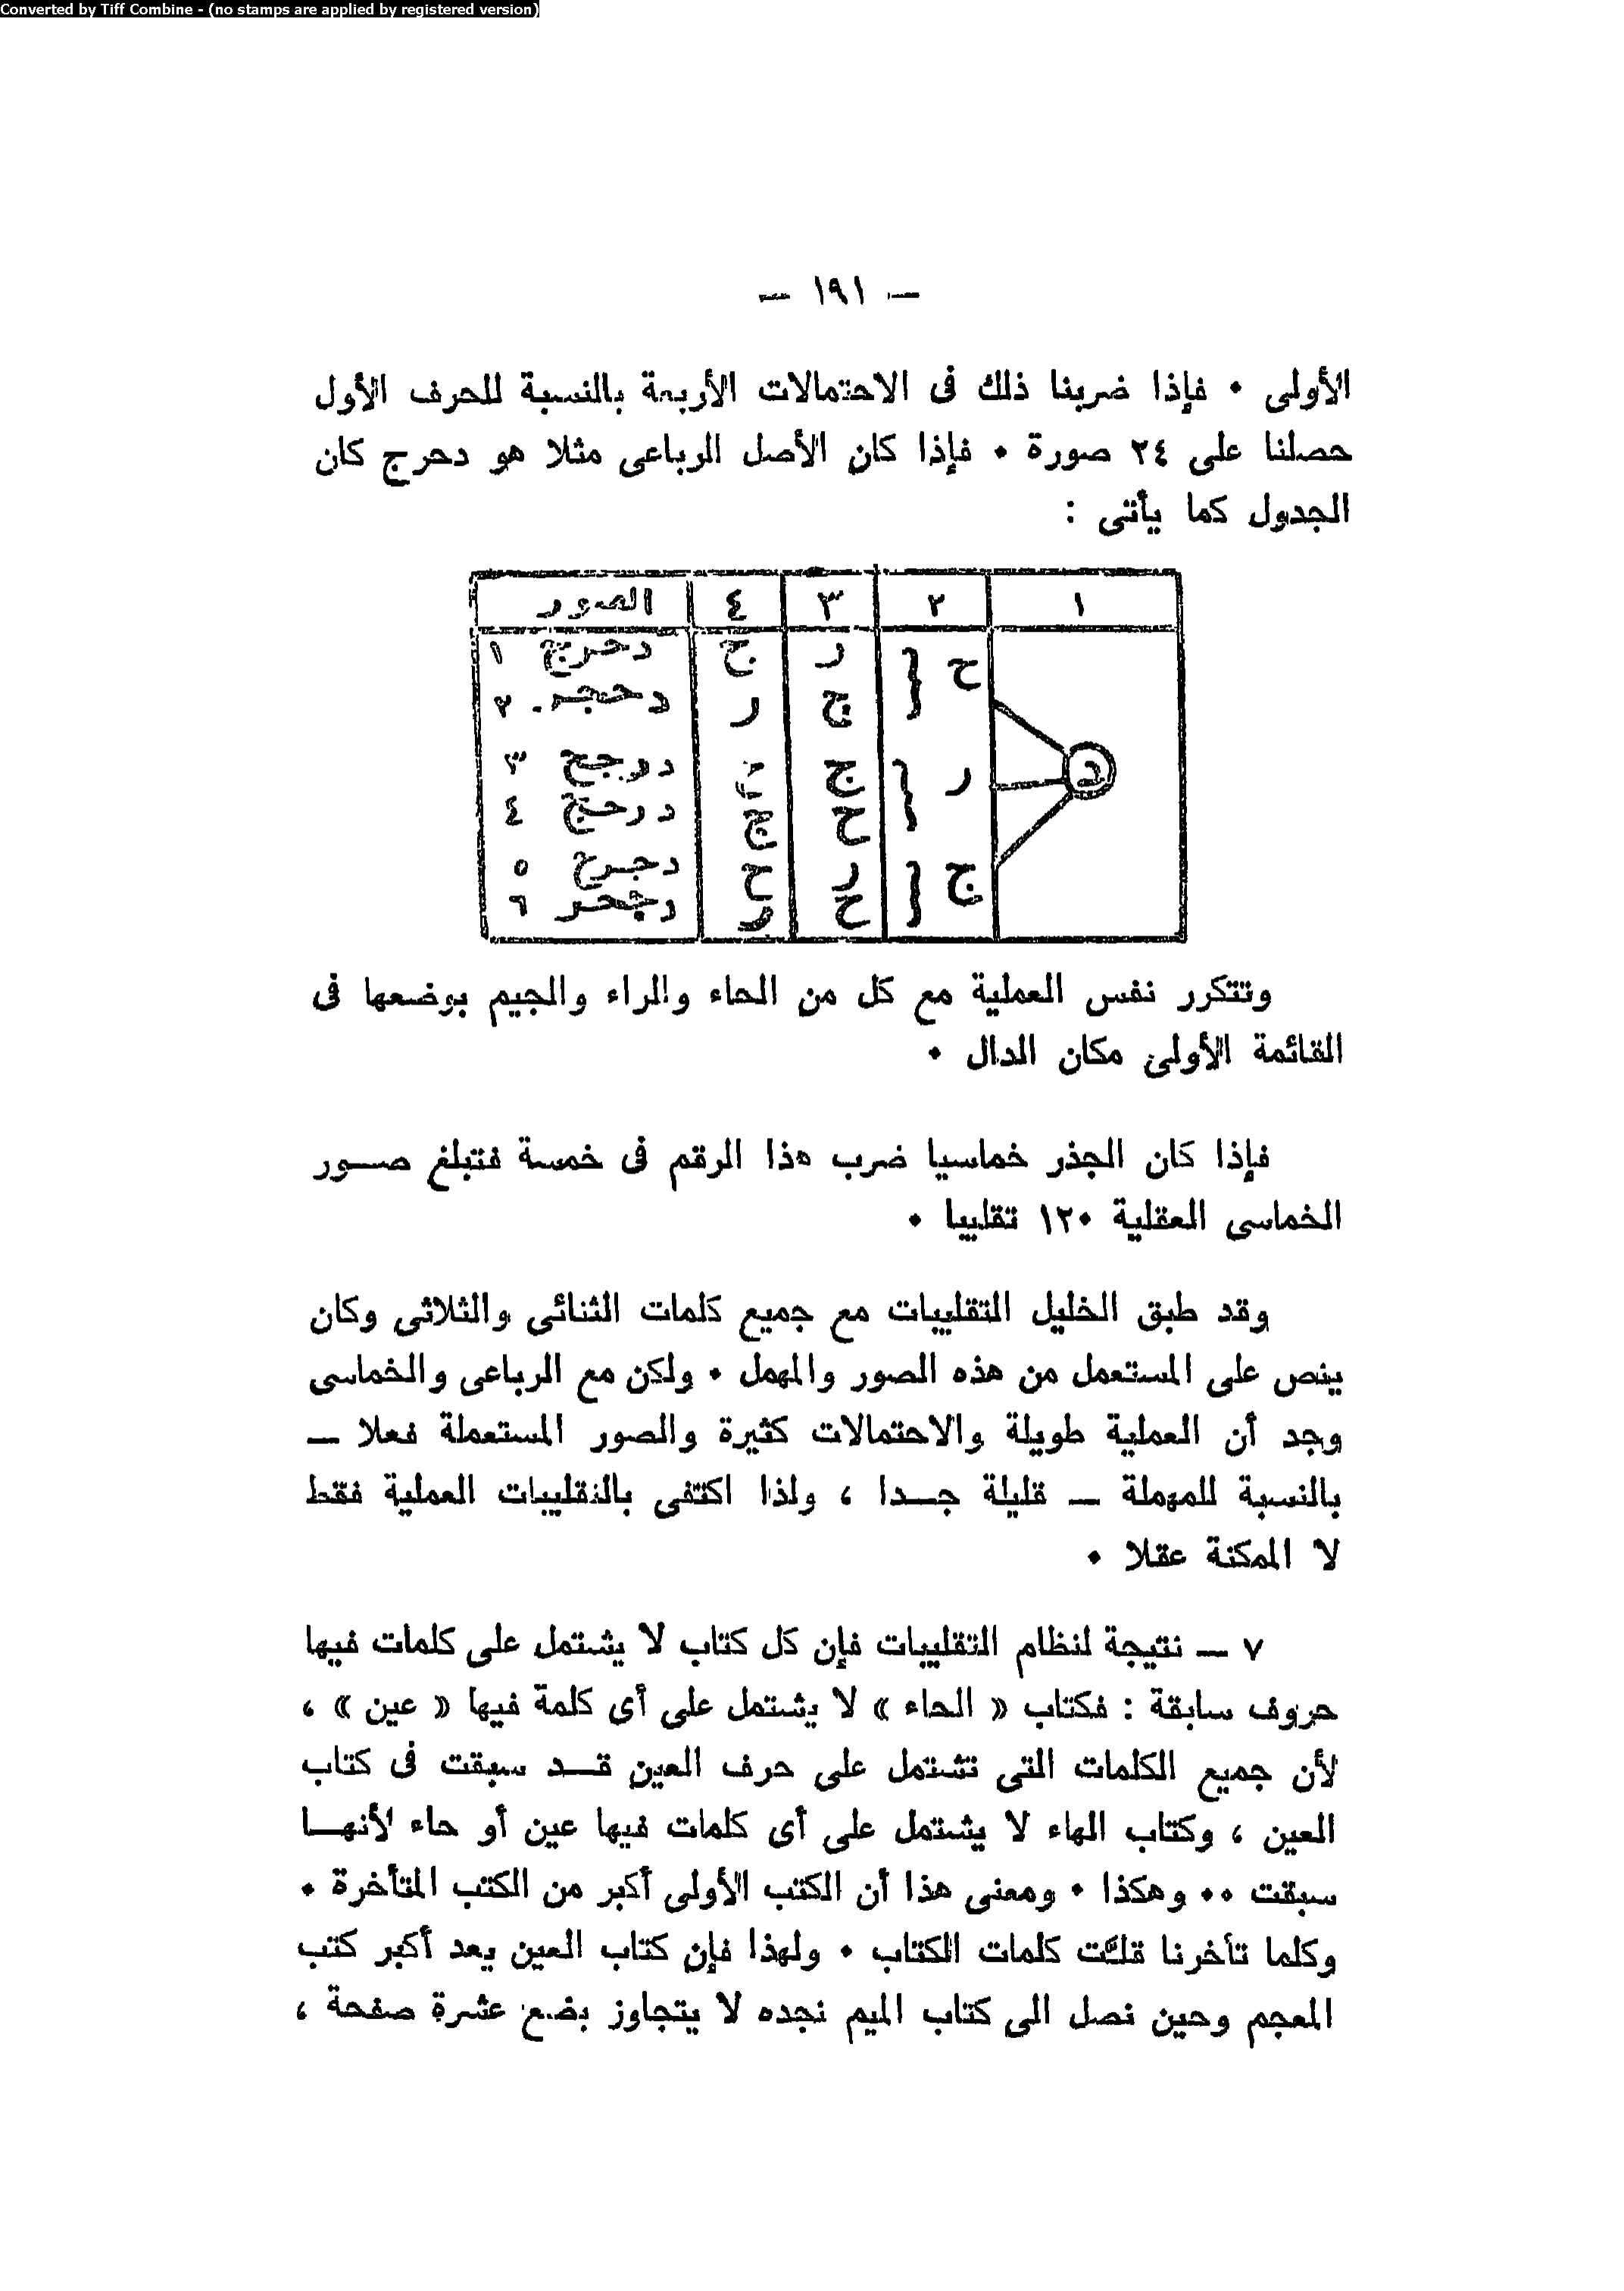 Converted by Tiff Combine - (no stamps are applied by registered version)
— ١٩١ —
الأولى ٠ فإذا ضربنا ذلك فى الاحتمالات الأربعة بالنسبة للحرف الأول
حصلنا على ٢٤ صورة ٠ فإذا كان الأصل الرباعى مثلا هو دحرج كان
الجدول كما يأتى :
١ ٢ ٣ ٤ الصور
د
ح ر ج دحرج ١
ج ر دحجر ٢
ر ج ح درجح ٣
ح ج درحج ٤
ج ر ح دجرح ٥
ح ر دجحر ٦
وتتكرر نفس العملية مع كل من الحاء والراء والجيم بوضعها فى
القائمة الأولى مكان الدال ٠
فإذا كان الجذر خماسيا ضرب هذا الرقم فى خمسة فتبلغ صــور
الخماسى العقلية ١٢٠ تقليبا ٠
وقد طبق الخليل التقليبات مع جميع كلمات الثنائى والثلاثى وكان
ينص على المستعمل من هذه الصور والمهمل ٠ ولكن مع الرباعى والخماسى
وجد أن العملية طويلة والاحتمالات كثيرة والصور المستعملة فعلا —
بالنسبة للمهملة — قليلة جــدا ، ولذا اكتفى بالتقليبات العملية فقط
لا الممكنة عقلا ٠
٧ — نتيجة لنظام التقليبات فإن كل كتاب لا يشتمل على كلمات فيها
حروف سابقة : فكتاب « الحاء » لا يشتمل على أى كلمة فيها « عين » ،
لأن جميع الكلمات التى تشتمل على حرف العين قــد سبقت فى كتاب
العين ، وكتاب الهاء لا يشتمل على أى كلمات فيها عين أو حاء لأنهــا
سبقت ٠٠ وهكذا ٠ ومعنى هذا أن الكتب الأولى أكبر من الكتب المتأخرة ٠
وكلما تأخرنا قلَّت كلمات الكتاب ٠ ولهذا فإن كتاب العين يعد أكبر كتب
المعجم وحين نصل الى كتاب الميم نجده لا يتجاوز بضع عشرة صفحة ،